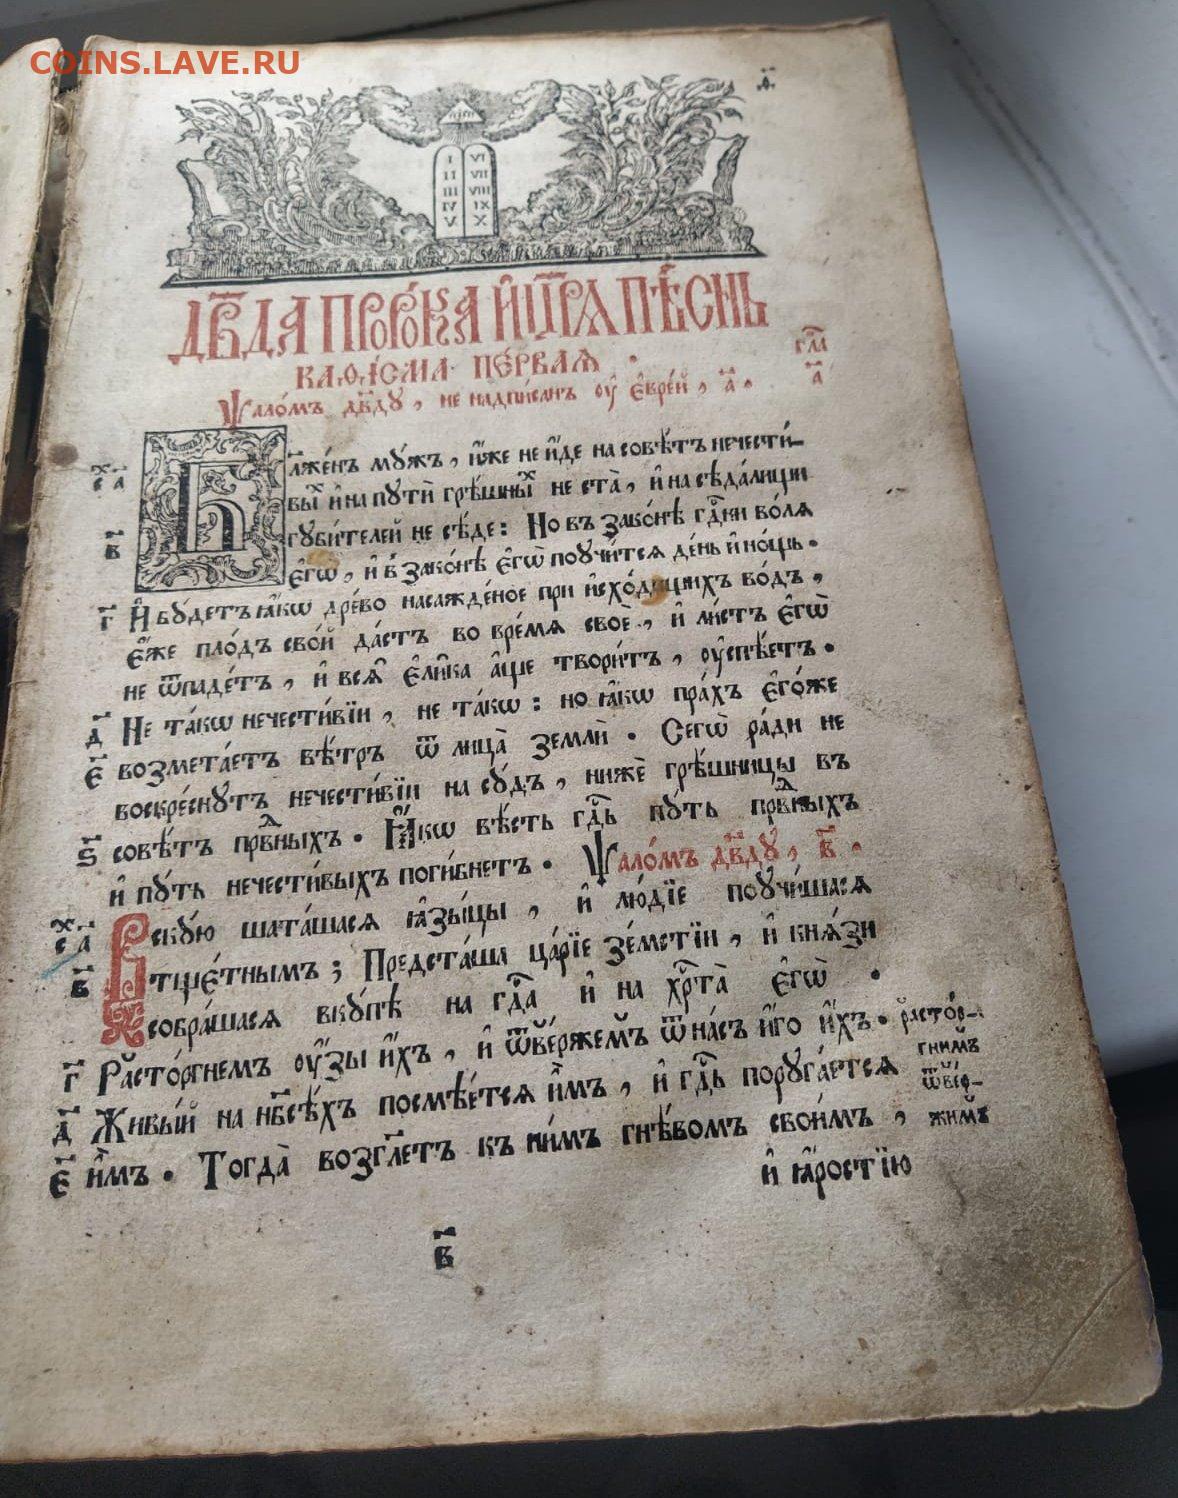 COINS.LAVE.RU
а҃
I VI
II VII
III VIII
IV IX
V X
Дв҃да проро́ка и҆ цр҃ѧ пѣ́снь
Каѳі́сма пе́рваѧ . гла
Ѱало́мъ дв҃ду , не надпи́санъ оу҆ є҆вре́й , а҃ . а҃
Бл҃же́нъ мꙋ́жъ , и҆́же не и҆́де на совѣ́тъ нечести́-
вы́х и҆ на пꙋти̑ грѣ́шны́х не ста̀ , и҆ на сѣда́лищи
в҃ губи́телей не сѣ́де : Но въ зако́нѣ гд҇ни во́лѧ
є҆гѡ̀ , и҆ в зако́нѣ є҆гѡ̀ поучи́тсѧ де́нь и҆ но́щь .
г҃ И҆ бꙋ́детъ ꙗ҆́кѡ дре́во насажде́ное при и҆схо́дищихъ во́дъ ,
є҆́же пло́дъ сво́й да́стъ во вре́мѧ своѐ , и҆ ли́стъ є҆гѡ̀
не ѿпаде́тъ , и҆ всѧ̑ є҆ли̑ка а҆́ще твори́тъ , оу҆спѣ́етъ .
д҃ Не та́кѡ нечести́вїи , не та́кѡ : но ꙗ҆́кѡ пра́хъ є҆го́же
є҃ возмета́етъ вѣ́тръ ѿ лица̀ землѝ . Сегѡ̀ ра́ди не
воскре́снꙋтъ нечести́вїи на сꙋ́дъ , нижѐ грѣ́шницы въ
ѕ҃ совѣ́тъ првⷣныхъ . Ꙗ҆́кѡ вѣ́сть гд҇ь пꙋ́ть првⷣныхъ
и҆ пꙋ́ть нечести́выхъ поги́бнетъ . Ѱало́мъ дв҃дꙋ , в҃ .
а҃ Вскꙋ́ю шата́шасѧ ꙗ҆зы́цы , и҆ лю́дїе поꙋчи́шасѧ
в҃ тще́тнымъ ; Предста́ша ца́рїе зе́мстїи , и҆ кнѧ́зи
собра́шасѧ вкꙋ́пѣ на гд҇а и҆ на хрⷭ҇та̀ є҆гѡ̀ .
г҃ Расто́ргнемъ оу҆́зы и҆́хъ , и҆ ѿве́ржемъ ѿ на́съ и҆́го и҆́хъ . расто́р-
гнимъ
д҃ Живы́й на нб҃сѣ́хъ посмѣе́тсѧ и҆̀мъ , и҆ гд҇ь порꙋга́етсѧ ѿве́р-
є҃ и҆̀мъ . Тогда̀ возгл҃етъ къ ни́мъ гнѣ́вомъ свои́мъ , жимъ
и҆ ꙗ҆́ростїю
в҃